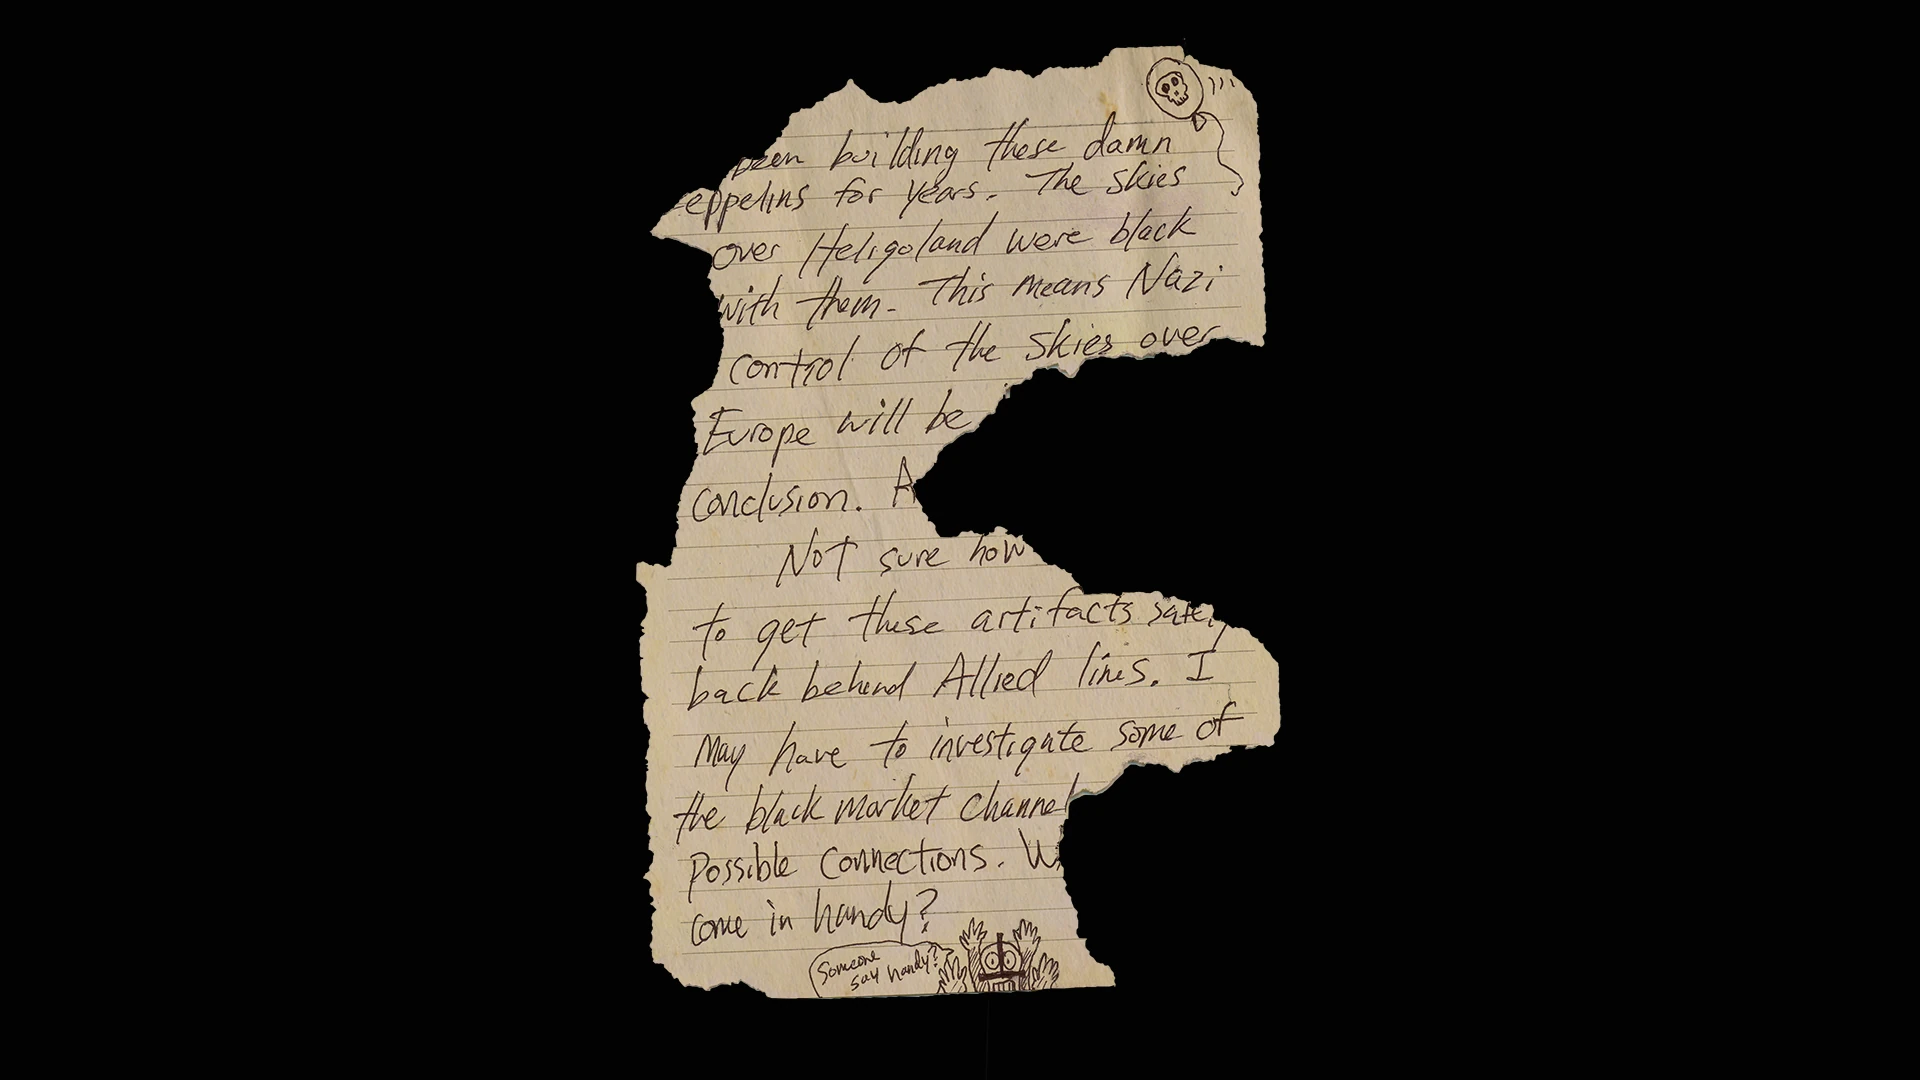 been building these damn
eppelins for years. The skies
over Heligoland were black
with them. This means Nazi
control of the skies over
Europe will be
conclusion. A
Not sure how
to get these artifacts safely
back behind Allied lines. I
may have to investigate some of
the black market channel
possible connections. W
come in handy?
Someone
say handy?